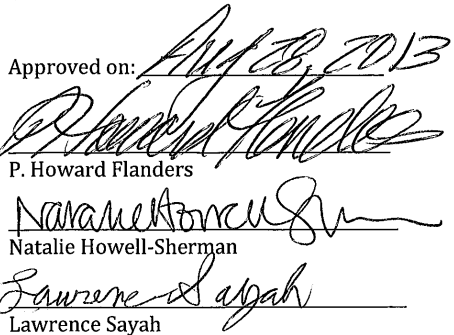 Approved on: Aug 28, 2013
P. Howard Flanders
P. Howard Flanders
Natalie Howell-Sherman
Natalie Howell-Sherman
Lawrence Sayah
Lawrence Sayah